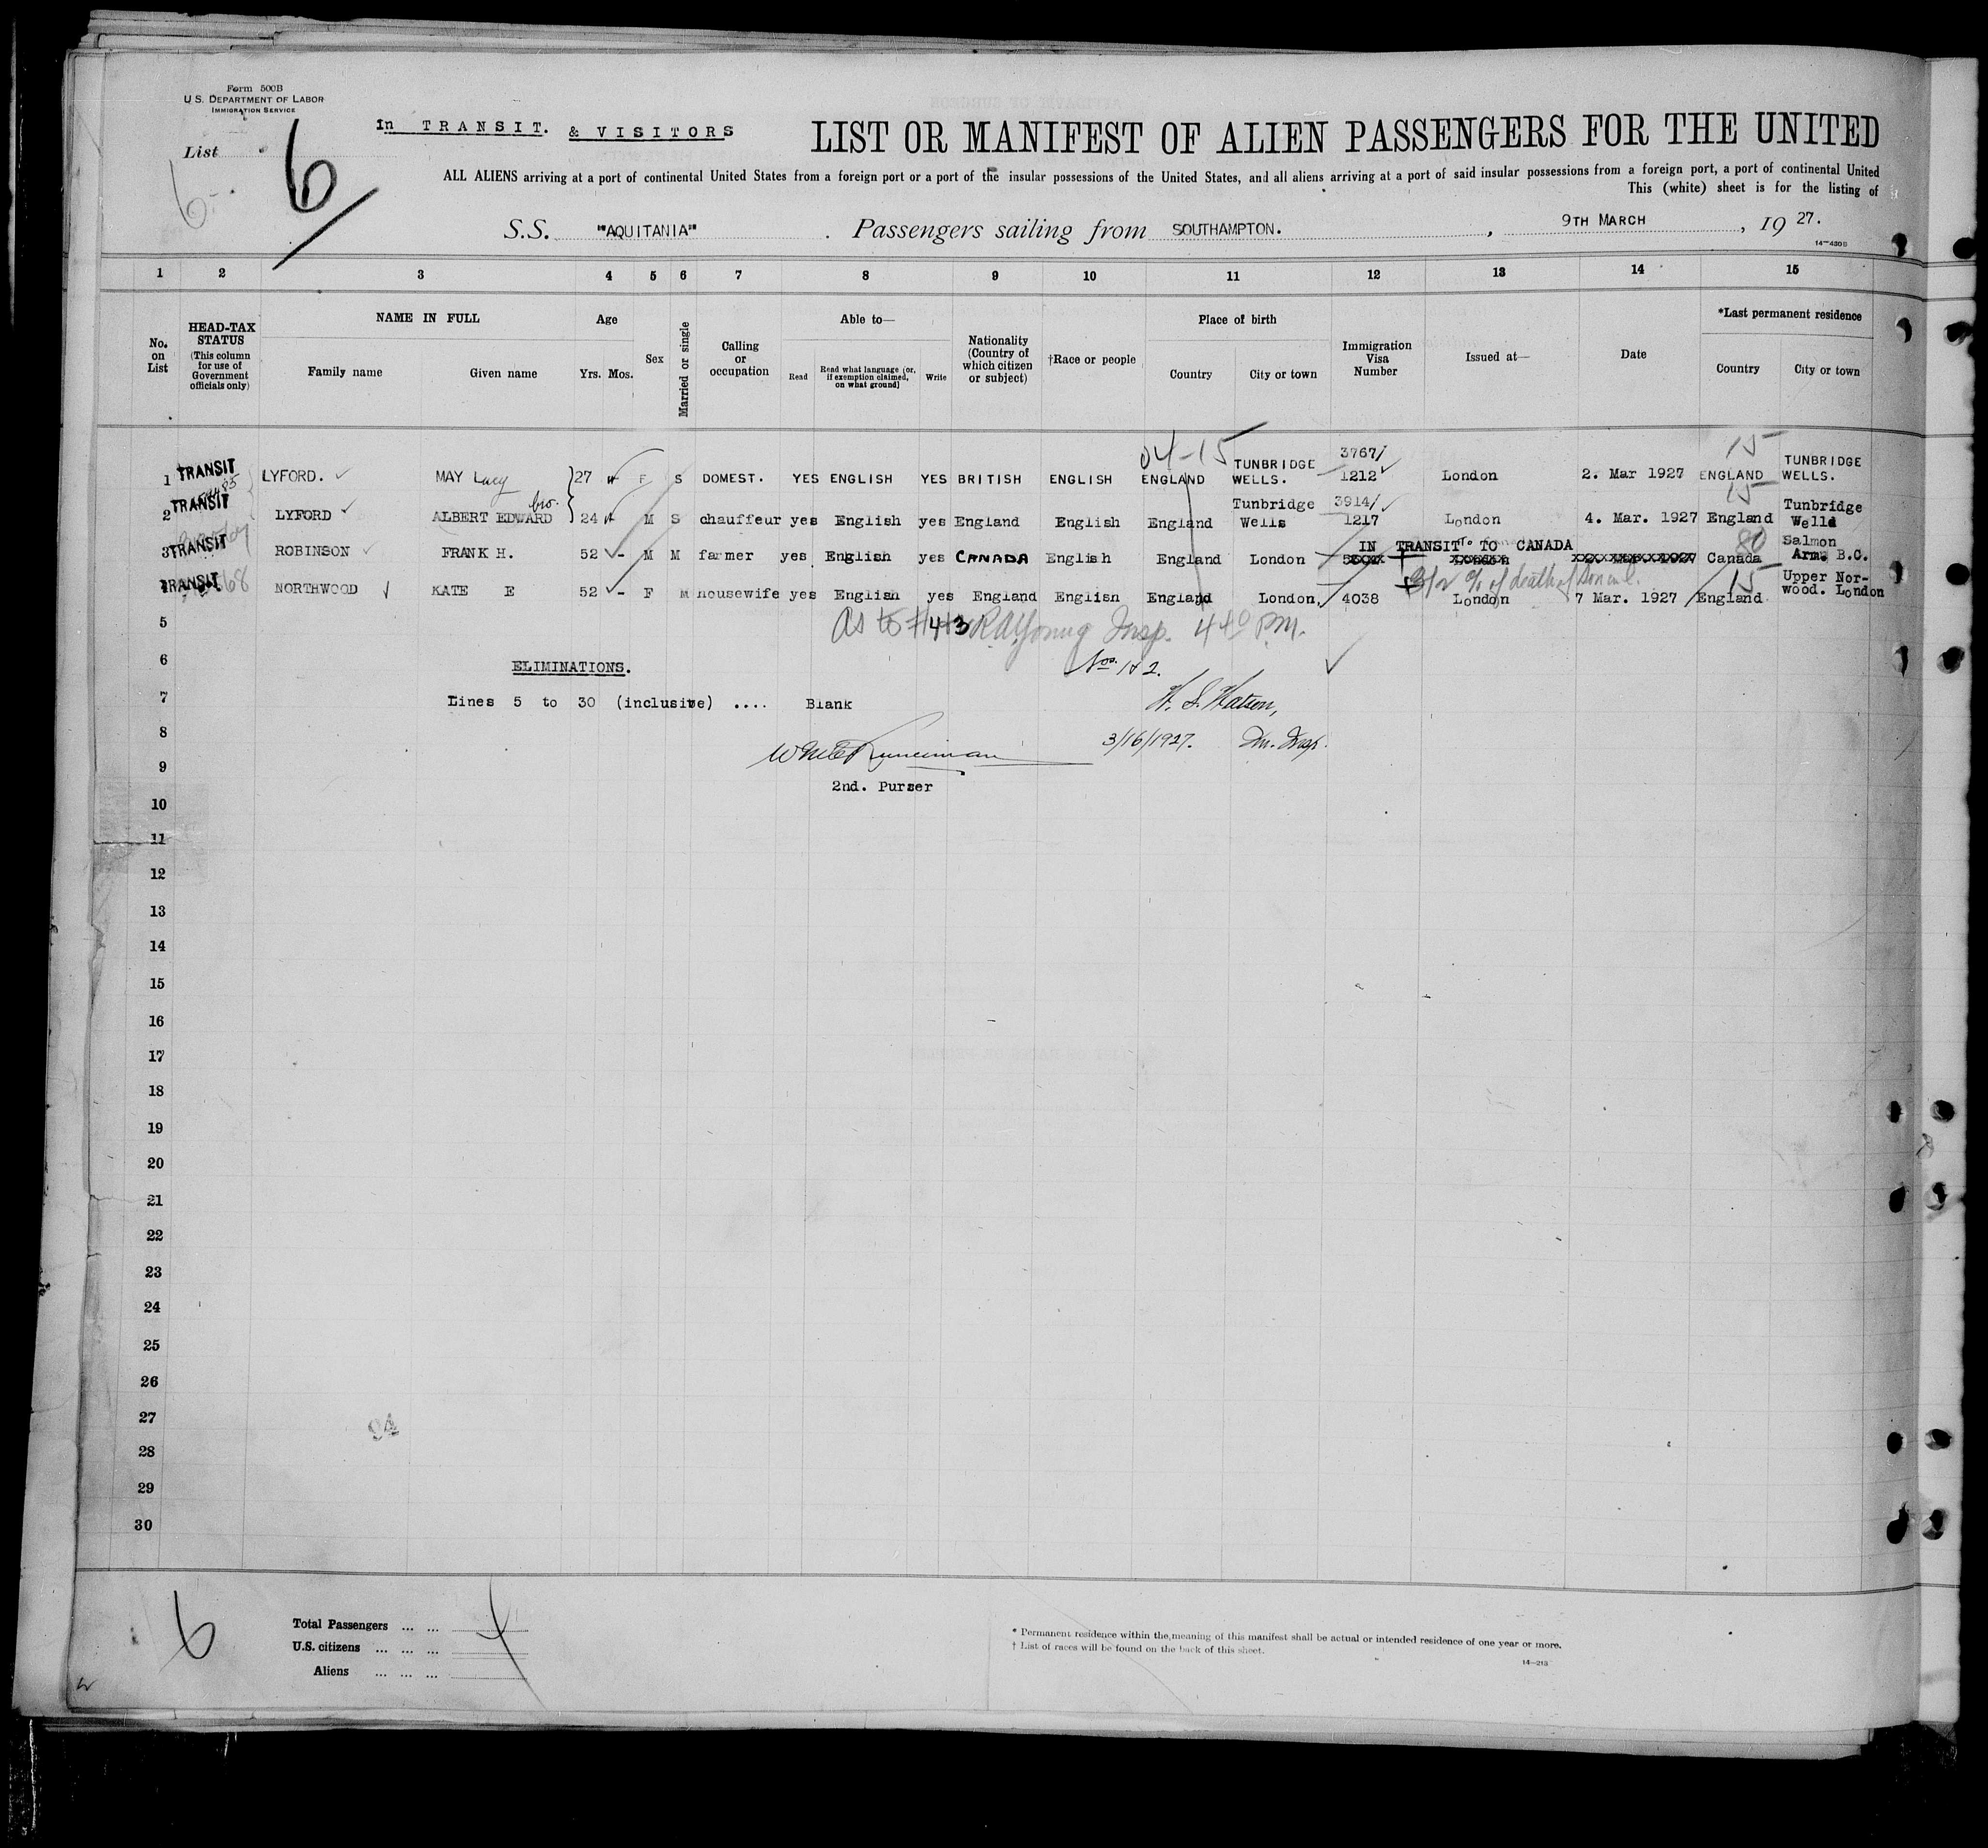 Form 500B
U.S. DEPARTMENT OF LABOR
IMMIGRATION SERVICE
In TRANSIT. & VISITORS
LIST OR MANIFEST OF ALIEN PASSENGERS FOR THE UNITED
List 6
ALL ALIENS arriving at a port of continental United States from a foreign port or a port of the insular possessions of the United States, and all aliens arriving at a port of said insular possessions from a foreign port, a port of continental United
This (white) sheet is for the listing of
S.S. "AQUITANIA" . Passengers sailing from SOUTHAMPTON. , 9TH MARCH , 19 27.
1 2 3 4 5 6 7 8 9 10 11 12 13 14 15
No. on List
HEAD-TAX STATUS (This column for use of Government officials only)
NAME IN FULL
Family name Given name
Age
Yrs. Mos.
Sex
Married or single
Calling or occupation
Able to—
Read
Read what language (or, if exemption claimed, on what ground)
Write
Nationality (Country of which citizen or subject)
†Race or people
Place of birth
Country City or town
Immigration Visa Number
Issued at—
Date
*Last permanent residence
Country City or town
04-15 15
1 TRANSIT LYFORD. MAY Lucy 27 F S DOMEST. YES ENGLISH YES BRITISH ENGLISH ENGLAND TUNBRIDGE WELLS. 3767/1212 London 2. Mar 1927 ENGLAND TUNBRIDGE WELLS.
15
2 TRANSIT LYFORD ALBERT EDWARD bro. 24 M S chauffeur yes English yes England English England Tunbridge Wells 3914/1217 London 4. Mar. 1927 England Tunbridge Wells
3 TRANSIT ROBINSON FRANK H. 52 - M M farmer yes English yes CANADA English England London IN TRANSIT TO CANADA 80 Canada Salmon Arm. B.C.
4 TRANSIT NORTHWOOD KATE E 52 - F M housewife yes English yes England English England London, 4038 London 7 Mar. 1927 England 15 Upper Norwood. London
5
As to #4+3 R A Young Insp. 4 40 P.M.
6
ELIMINATIONS.
Nos. 1 & 2.
7
Lines 5 to 30 (inclusive) .... Blank
8
3/16/1927. Im. Insp.
9
2nd. Purser
10
11
12
13
14
15
16
17
18
19
20
21
22
23
24
25
26
27
94
28
29
30
6
Total Passengers ... ... 4
U.S. citizens ... ... ...
Aliens ... ... ...
* Permanent residence within the meaning of this manifest shall be actual or intended residence of one year or more.
† List of races will be found on the back of this sheet.
14—213